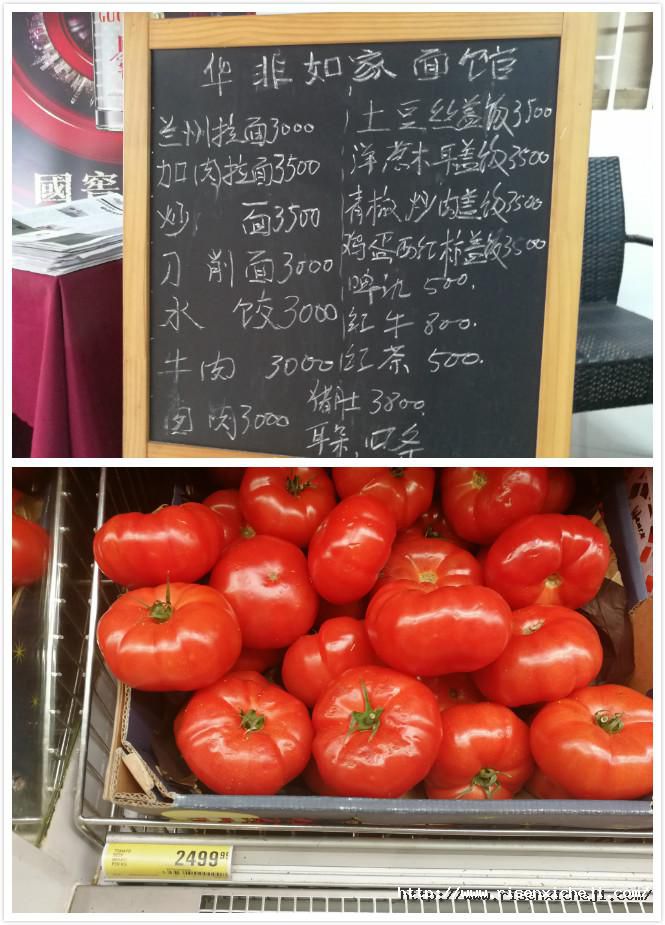 國窖
华非如家面馆
兰州拉面3000
加肉拉面3500
炒 面3500
刀削面3000
水 饺3000
牛肉 3000
卤肉3000
土豆丝盖饭3500
洋葱木耳盖饭3500
青椒炒肉盖饭3500
鸡蛋西红柿盖饭3500
啤酒 500.
红牛 800.
红茶 500.
猪肚 3800.
耳朵,口条
TOMATO
2499.95
http://www.risenxicheji.com/